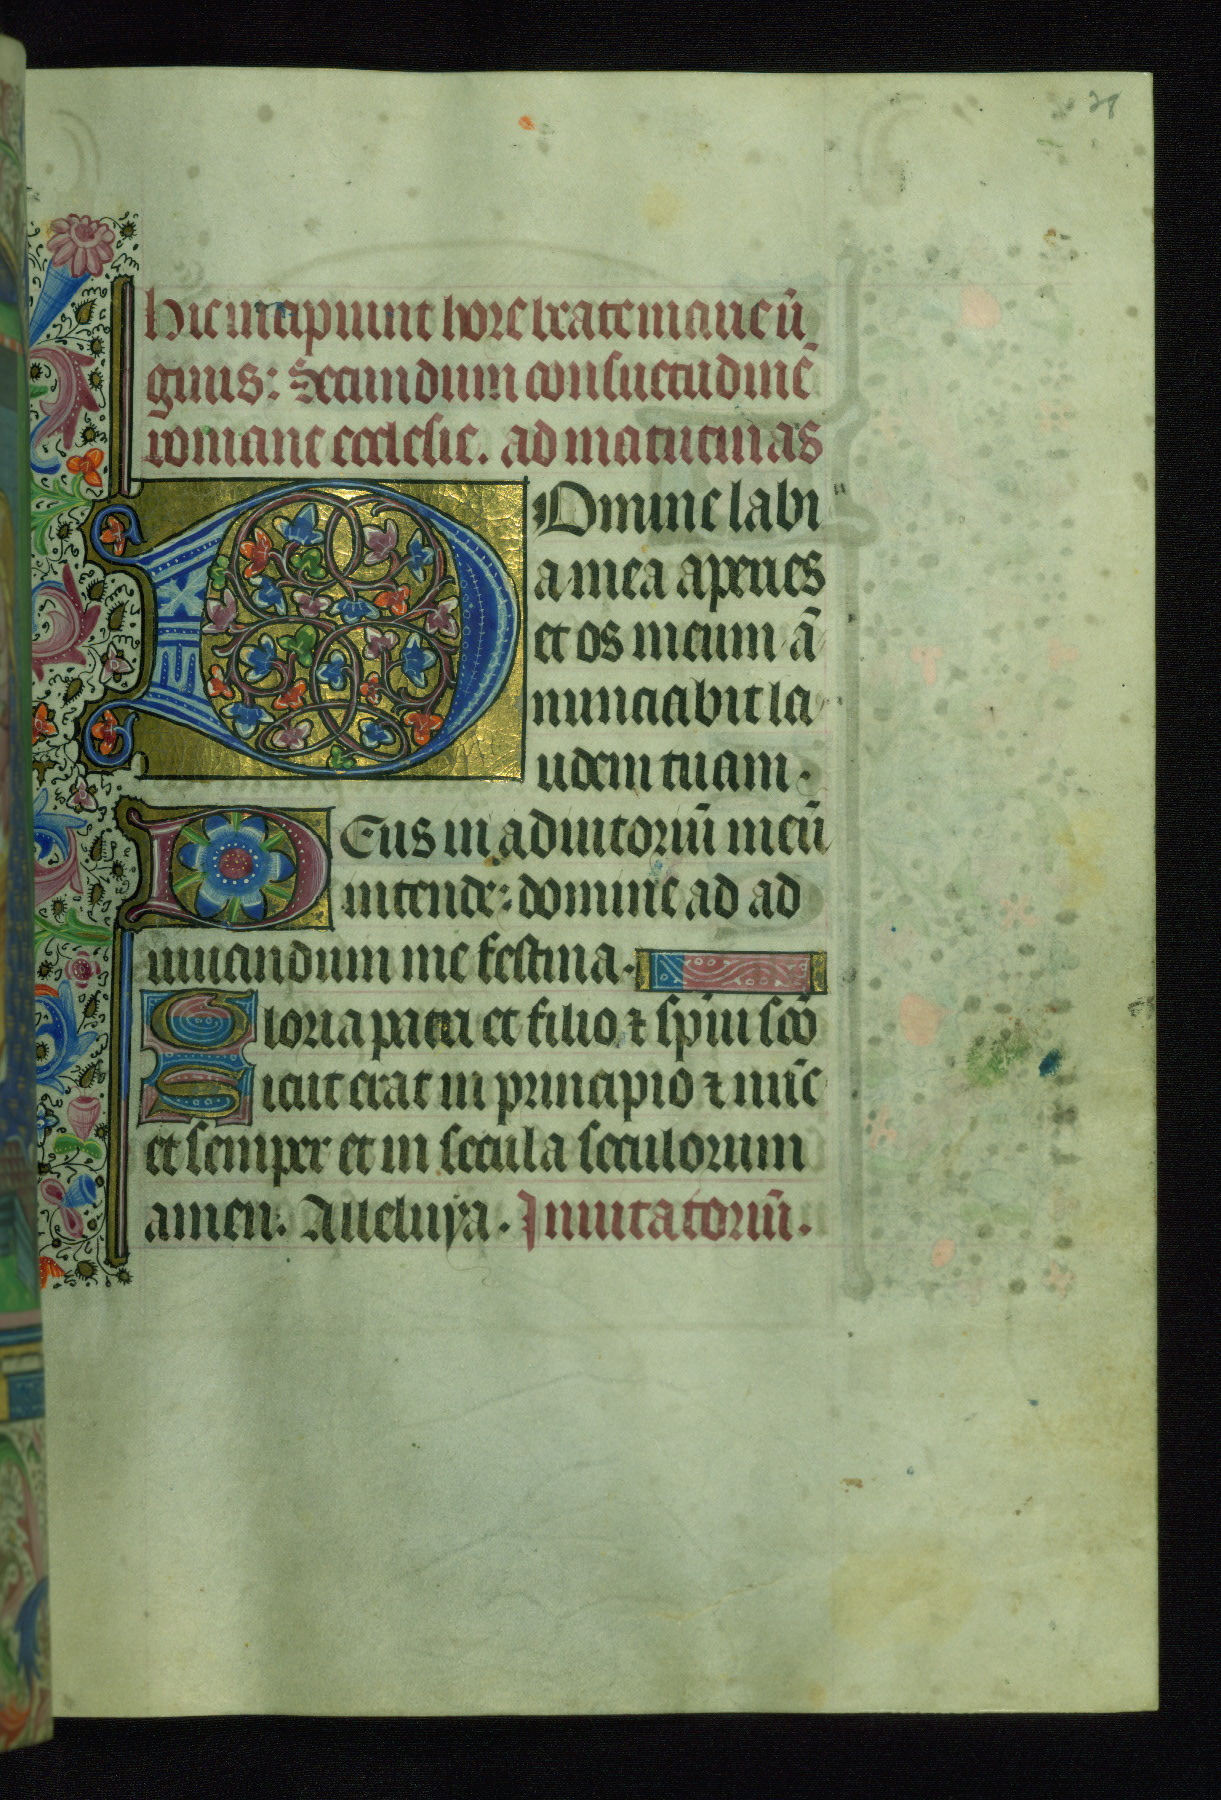 28
hic incipiunt hore beate marie ū
ginis: Secundum consuetudinē
romane ecclesie. ad matutinas
Domine labi
a mea aperies
et os meum ā
nunciabit la
udem tuam.
Deus in adiutoriū meū
intende: domine ad ad
iuuandum me festina.
Gloria patri et filio ⁊ sp̄iu sc̄o
Sicut erat in principio ⁊ nūc
et semper et in secula seculorum
amen. Alleluya. Inuitatoriū.